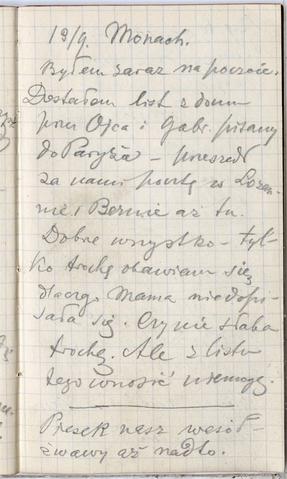 19/9. Monach.
Byłem zaraz na poczcie.
Dostałem list z domu
przez Ojca i Gabr. pisany
do Paryża – przeszedł
za nami pocztę w Lozan-
nie i Bernie aż tu.
Dobre wszystko – tyl-
ko trochę obawiam się
dlaczego Mama nie dopi-
sała się. Czy nie słaba
trochę. Ale z listu
tego wnosić nie mogę.
Presek nasz wesół –
żwawy aż nadto.